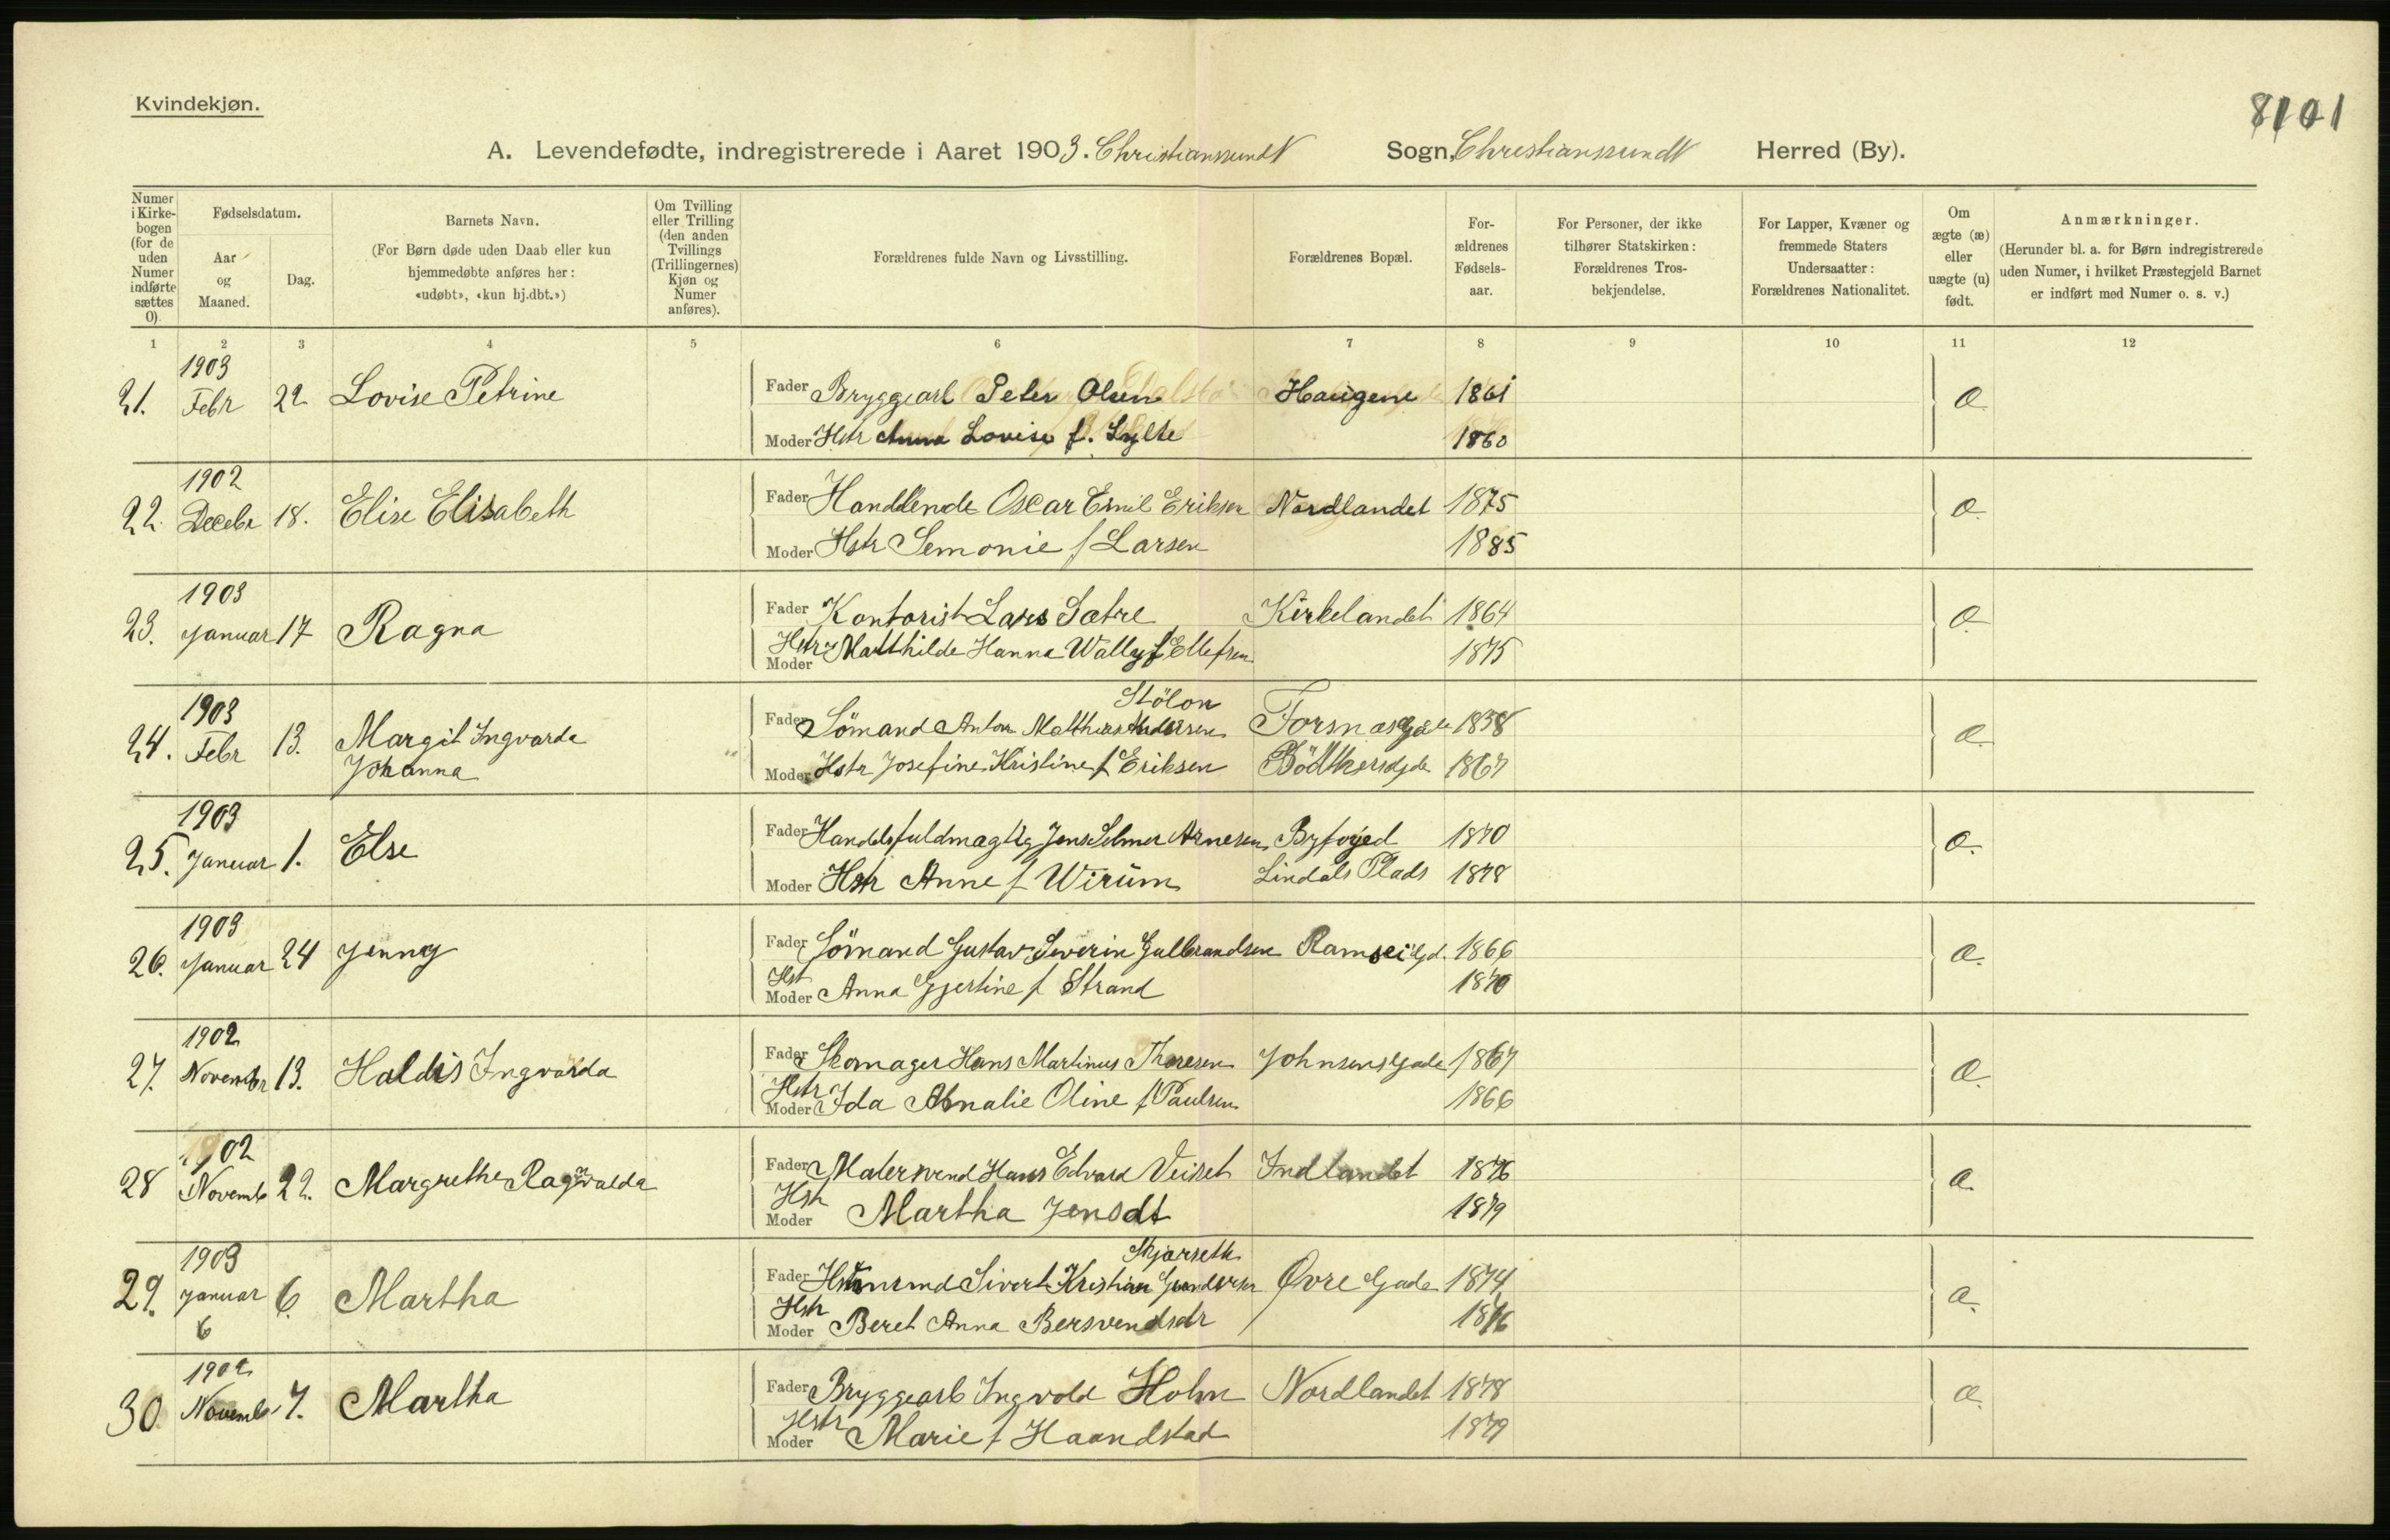 Kvindekjøn.
8101
A. Levendefødte, indregistrerede i Aaret 1903. ChristianssundN Sogn, ChristianssundN Herred (By).
Numer i Kirkebogen (for de uden Numer indførte sættes 0).
Fødselsdatum.
Aar og Maaned.
Dag.
Barnets Navn.
(For Børn døde uden Daab eller kun hjemmedøbte anføres her: «udøbt», «kun hj.dbt.»)
Om Tvilling eller Trilling (den anden Tvillings (Trillingernes) Kjøn og Numer anføres).
Forældrenes fulde Navn og Livsstilling.
Forældrenes Bopæl.
For-ældrenes Fødsels-aar.
For Personer, der ikke tilhører Statskirken: Forældrenes Tros-bekjendelse.
For Lapper, Kvæner og fremmede Staters Undersaatter: Forældrenes Nationalitet.
Om ægte (æ) eller uægte (u) født.
Anmærkninger.
(Herunder bl. a. for Børn indregistrerede uden Numer, i hvilket Præstegjeld Barnet er indført med Numer o. s. v.)
1 2 3 4 5 6 7 8 9 10 11 12
1903
21. Febr 22 Lovise Petrine Fader Bryggearb Peter Olsen Haugene 1861 æ
Moder Hstr Anna Lovise f. Lylte 1860
1902
22. Decebr 18. Elise Elisabeth Fader Handlende Oscar Emil Eriksen Nordlandet 1875 æ
Moder Hstr Semonie f Larsen 1885
1903
23. Januar 17 Ragna Fader Kontorist Lars Sætre Kirkelandet 1864 æ
Hstr Moder Matthilde Hanna Wally f Ellefsen 1875
1903 Stölon
24. Febr 13. Margit Ingvarda Fader Sömand Anton Mathias Andersen Forsnæsgade 1838 æ.
Johanna Moder Hstr Josefine Kristine f Eriksen Bödtkersgde 1867
1903
25. Januar 1. Else Fader Handelsfuldmægtig Jens Selmer Arnesen Byfoged 1870 æ.
Moder Hstr Anne f Wirum Lindals Plads 1878
1903
26. Januar 24 Jenny Fader Sömand Gustav Severin Gulbrandsen Ramseigd. 1866 æ.
Hst Moder Anna Gjertine f Strand 1870
1902
27. Novembr 13. Haldis Ingvarda Fader Skomager Hans Martinus Thoresen Johnsensgade 1867 æ.
Hstr Moder Ida Amalie Oline f Paulsen 1866
1902
28 Novemb 22. Margrethe Ragnvalda Fader Malersvend Hans Edvard Veiset Indlandet 1876 æ.
Hstr Moder Martha Jensdt 1879
1903 Skjærseth
29. Januar 6. Martha Fader Sivert Kristian Gundersen Øvre Gade 1874 æ.
6 Hstr Moder Beret Anna Bersvendsdr 1876
1902
30 Novemb 7. Martha Fader Bryggearb Ingvold Holm Nordlandet 1878 æ.
Hstr Moder Marie f Haandstad 1879